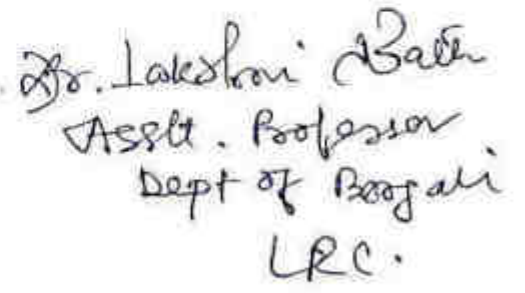 Dr. Lakshmi Bath
Asstt. Professor
Dept of Bengali
LRC.